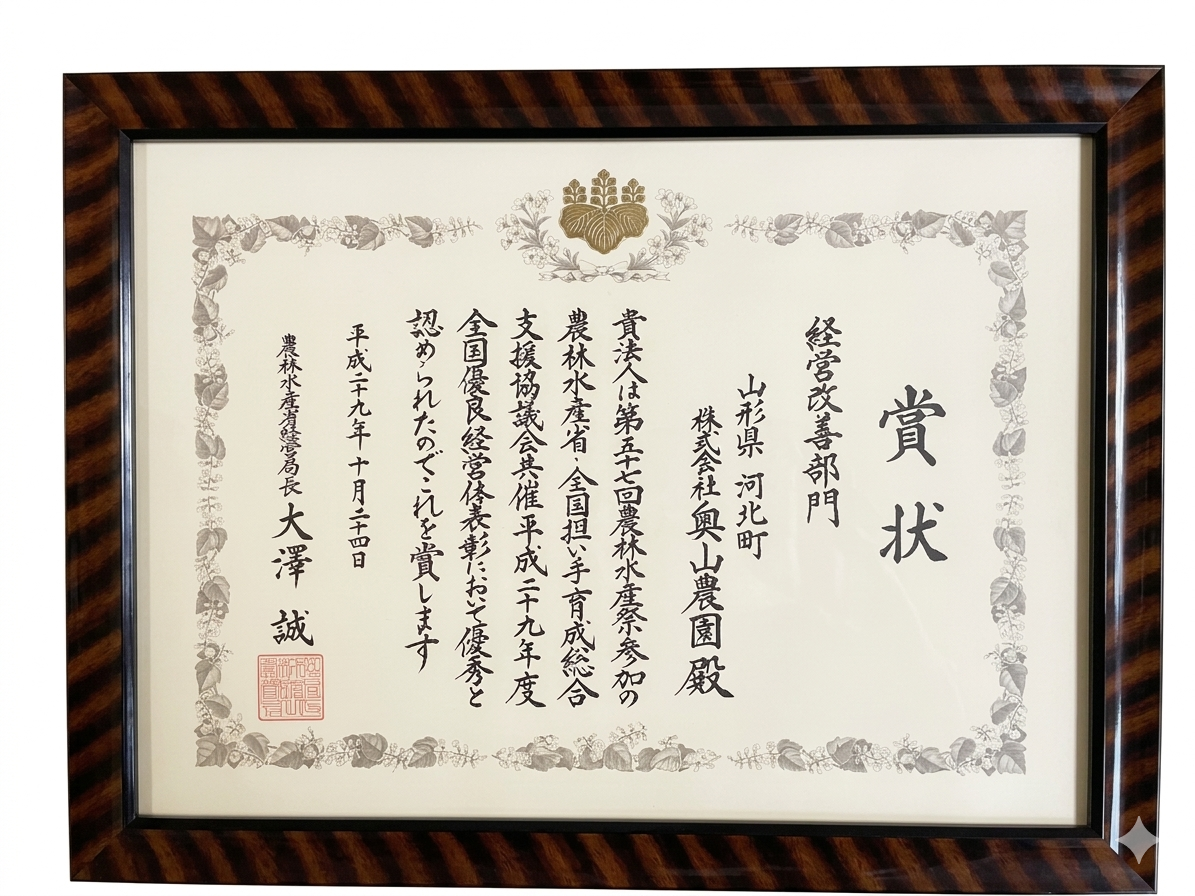 賞状
経営改善部門
山形県 河北町
株式会社奥山農園殿
貴法人は第五十七回農林水産祭参加の
農林水産省・全国担い手育成総合
支援協議会共催平成二十九年度
全国優良経営体表彰において優秀と
認められたのでこれを賞します
平成二十九年十月二十四日
農林水産省経営局長 大澤 誠